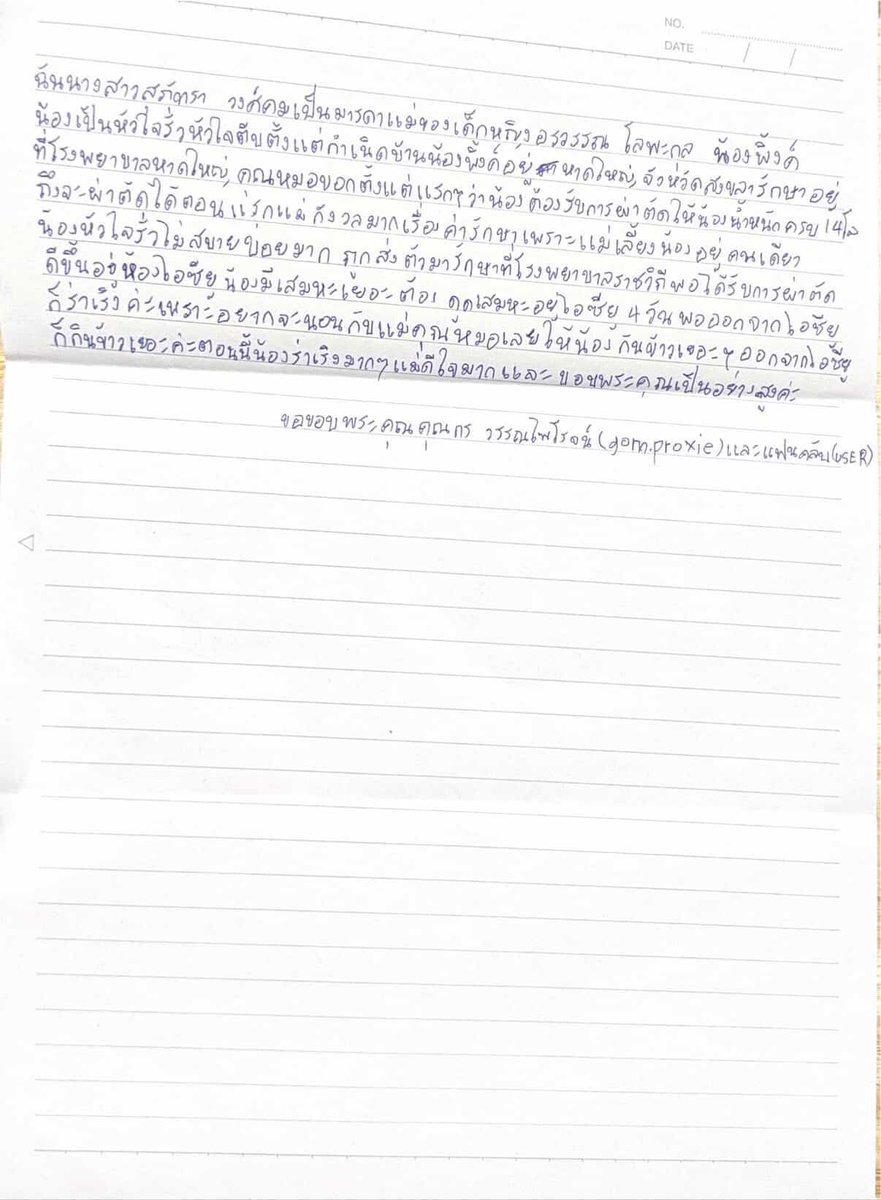 NO.
DATE / /
ฉันนางสาวสุภัทรา วงศ์คมเป็นมารดาแม่ของเด็กหญิง อรวรรณ โลพะกุล น้องพิ้งค์
น้องเป็นหัวใจรั่วหัวใจตีบตั้งแต่กำเนิดบ้านน้องพิ้งค์อยู่ หาดใหญ่, จังหวัดสงขลารักษาอยู่
ที่โรงพยาบาลหาดใหญ่, คุณหมอบอกตั้งแต่แรกๆว่าน้องต้องรับการผ่าตัดให้น้องน้ำหนักครบ 14โล
ถึงจะผ่าตัดได้ตอนแรกแม่กังวลมากเรื่องค่ารักษาเพราะแม่เลี้ยงน้องอยู่คนเดียว
น้องหัวใจรั่วไม่สบายบ่อยมาก ถูกส่งตัวมารักษาที่โรงพยาบาลราชวิถีพอได้รับการผ่าตัด
ดีขึ้นอยู่ห้องไอซียู น้องมีเสมหะเยอะต้อง ดูดเสมหะอยู่ไอซียู 4 วันพอออกจากไอซียู
ก็ร่าเริงค่ะเพราะอยากจะนอนกับแม่คุณหมอเลยให้น้องกินข้าวเยอะๆออกจากไอซียู
ก็กินข้าวเยอะค่ะตอนนี้น้องร่าเริงมากๆแม่ดีใจมากและ ขอบพระคุณเป็นอย่างสูงค่ะ
ขอขอบพระคุณคุณกร วรรณไพโรจน์ (gorn.proxie) และแฟนคลับ(USER)